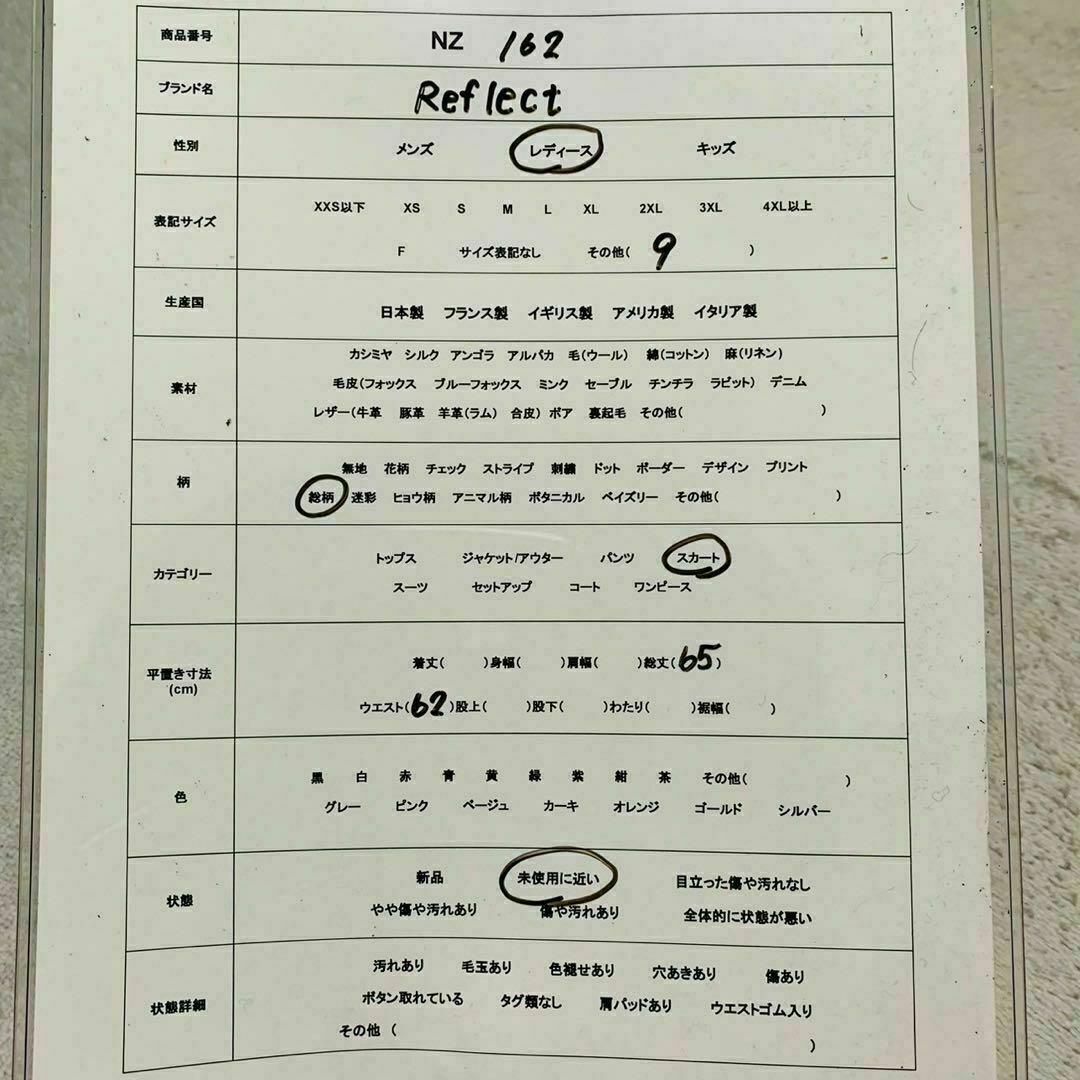 商品番号 NZ 162
ブランド名 Reflect
性別 メンズ レディース キッズ
XXS以下 XS S M L XL 2XL 3XL 4XL以上
表記サイズ
F サイズ表記なし その他( 9 )
生産国 日本製 フランス製 イギリス製 アメリカ製 イタリア製
カシミヤ シルク アンゴラ アルパカ 毛(ウール) 綿(コットン) 麻(リネン)
素材 毛皮(フォックス ブルーフォックス ミンク セーブル チンチラ ラビット) デニム
レザー(牛革 豚革 羊革(ラム) 合皮) ボア 裏起毛 その他( )
無地 花柄 チェック ストライプ 刺繍 ドット ボーダー デザイン プリント
柄
総柄 迷彩 ヒョウ柄 アニマル柄 ボタニカル ペイズリー その他( )
トップス ジャケット/アウター パンツ スカート
カテゴリー
スーツ セットアップ コート ワンピース
着丈( )身幅( )肩幅( )総丈( 65 )
平置き寸法
(cm)
ウエスト( 62 )股上( )股下( )わたり( )裾幅( )
黒 白 赤 青 黄 緑 紫 紺 茶 その他( )
色
グレー ピンク ベージュ カーキ オレンジ ゴールド シルバー
新品 未使用に近い 目立った傷や汚れなし
状態
やや傷や汚れあり 傷や汚れあり 全体的に状態が悪い
汚れあり 毛玉あり 色褪せあり 穴あきあり 傷あり
状態詳細 ボタン取れている タグ類なし 肩パッドあり ウエストゴム入り
その他 ( )